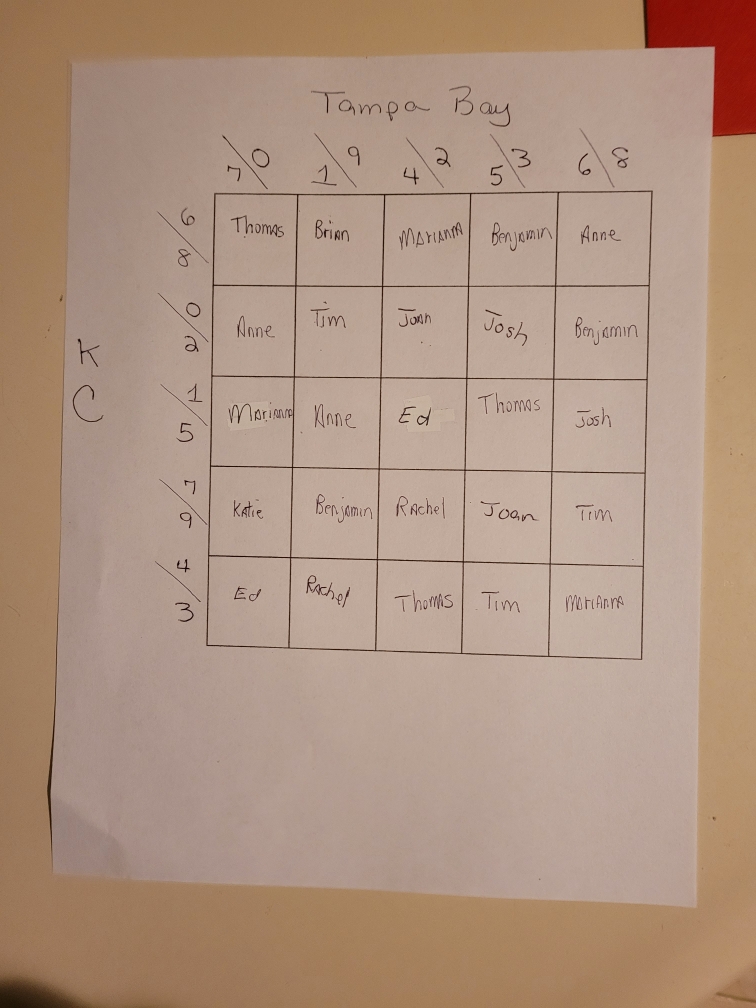 Tampa Bay
7/0 1\9 4\2 5\3 6\8
6/8 Thomas Brian Marianna Benjamin Anne
0/2 Anne Tim Joan Josh Benjamin
K
C
1/5 Marianna Anne Ed Thomas Josh
7/9 Katie Benjamin Rachel Joan Tim
4/3 Ed Rachel Thomas Tim Marianna